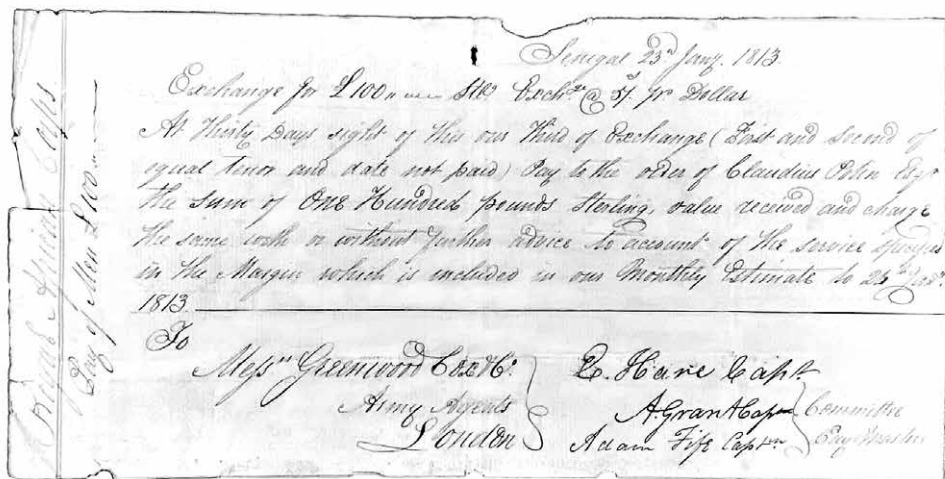 Royal African Corps
Pay of Men £100
Senegal 23d Jany 1813.
Exchange for £100 Stlg Exchge @ 5/ pr Dollar
At Thirty Days sight of this our third of Exchange (First and Second of
equal tenor and date not paid) Pay to the order of Claudius Esqr
the sum of One Hundred pounds Sterling, value received and charge
the same with or without further advice to account of the service specified
in the Margin which is included in our Monthly Estimate to 24th
1813.
To
Messrs Greenwood Cox & Co.
Army Agents
London
E. Hare Capt
A. Grant Captn
Adam Fife Captn
Committee
Pay Master